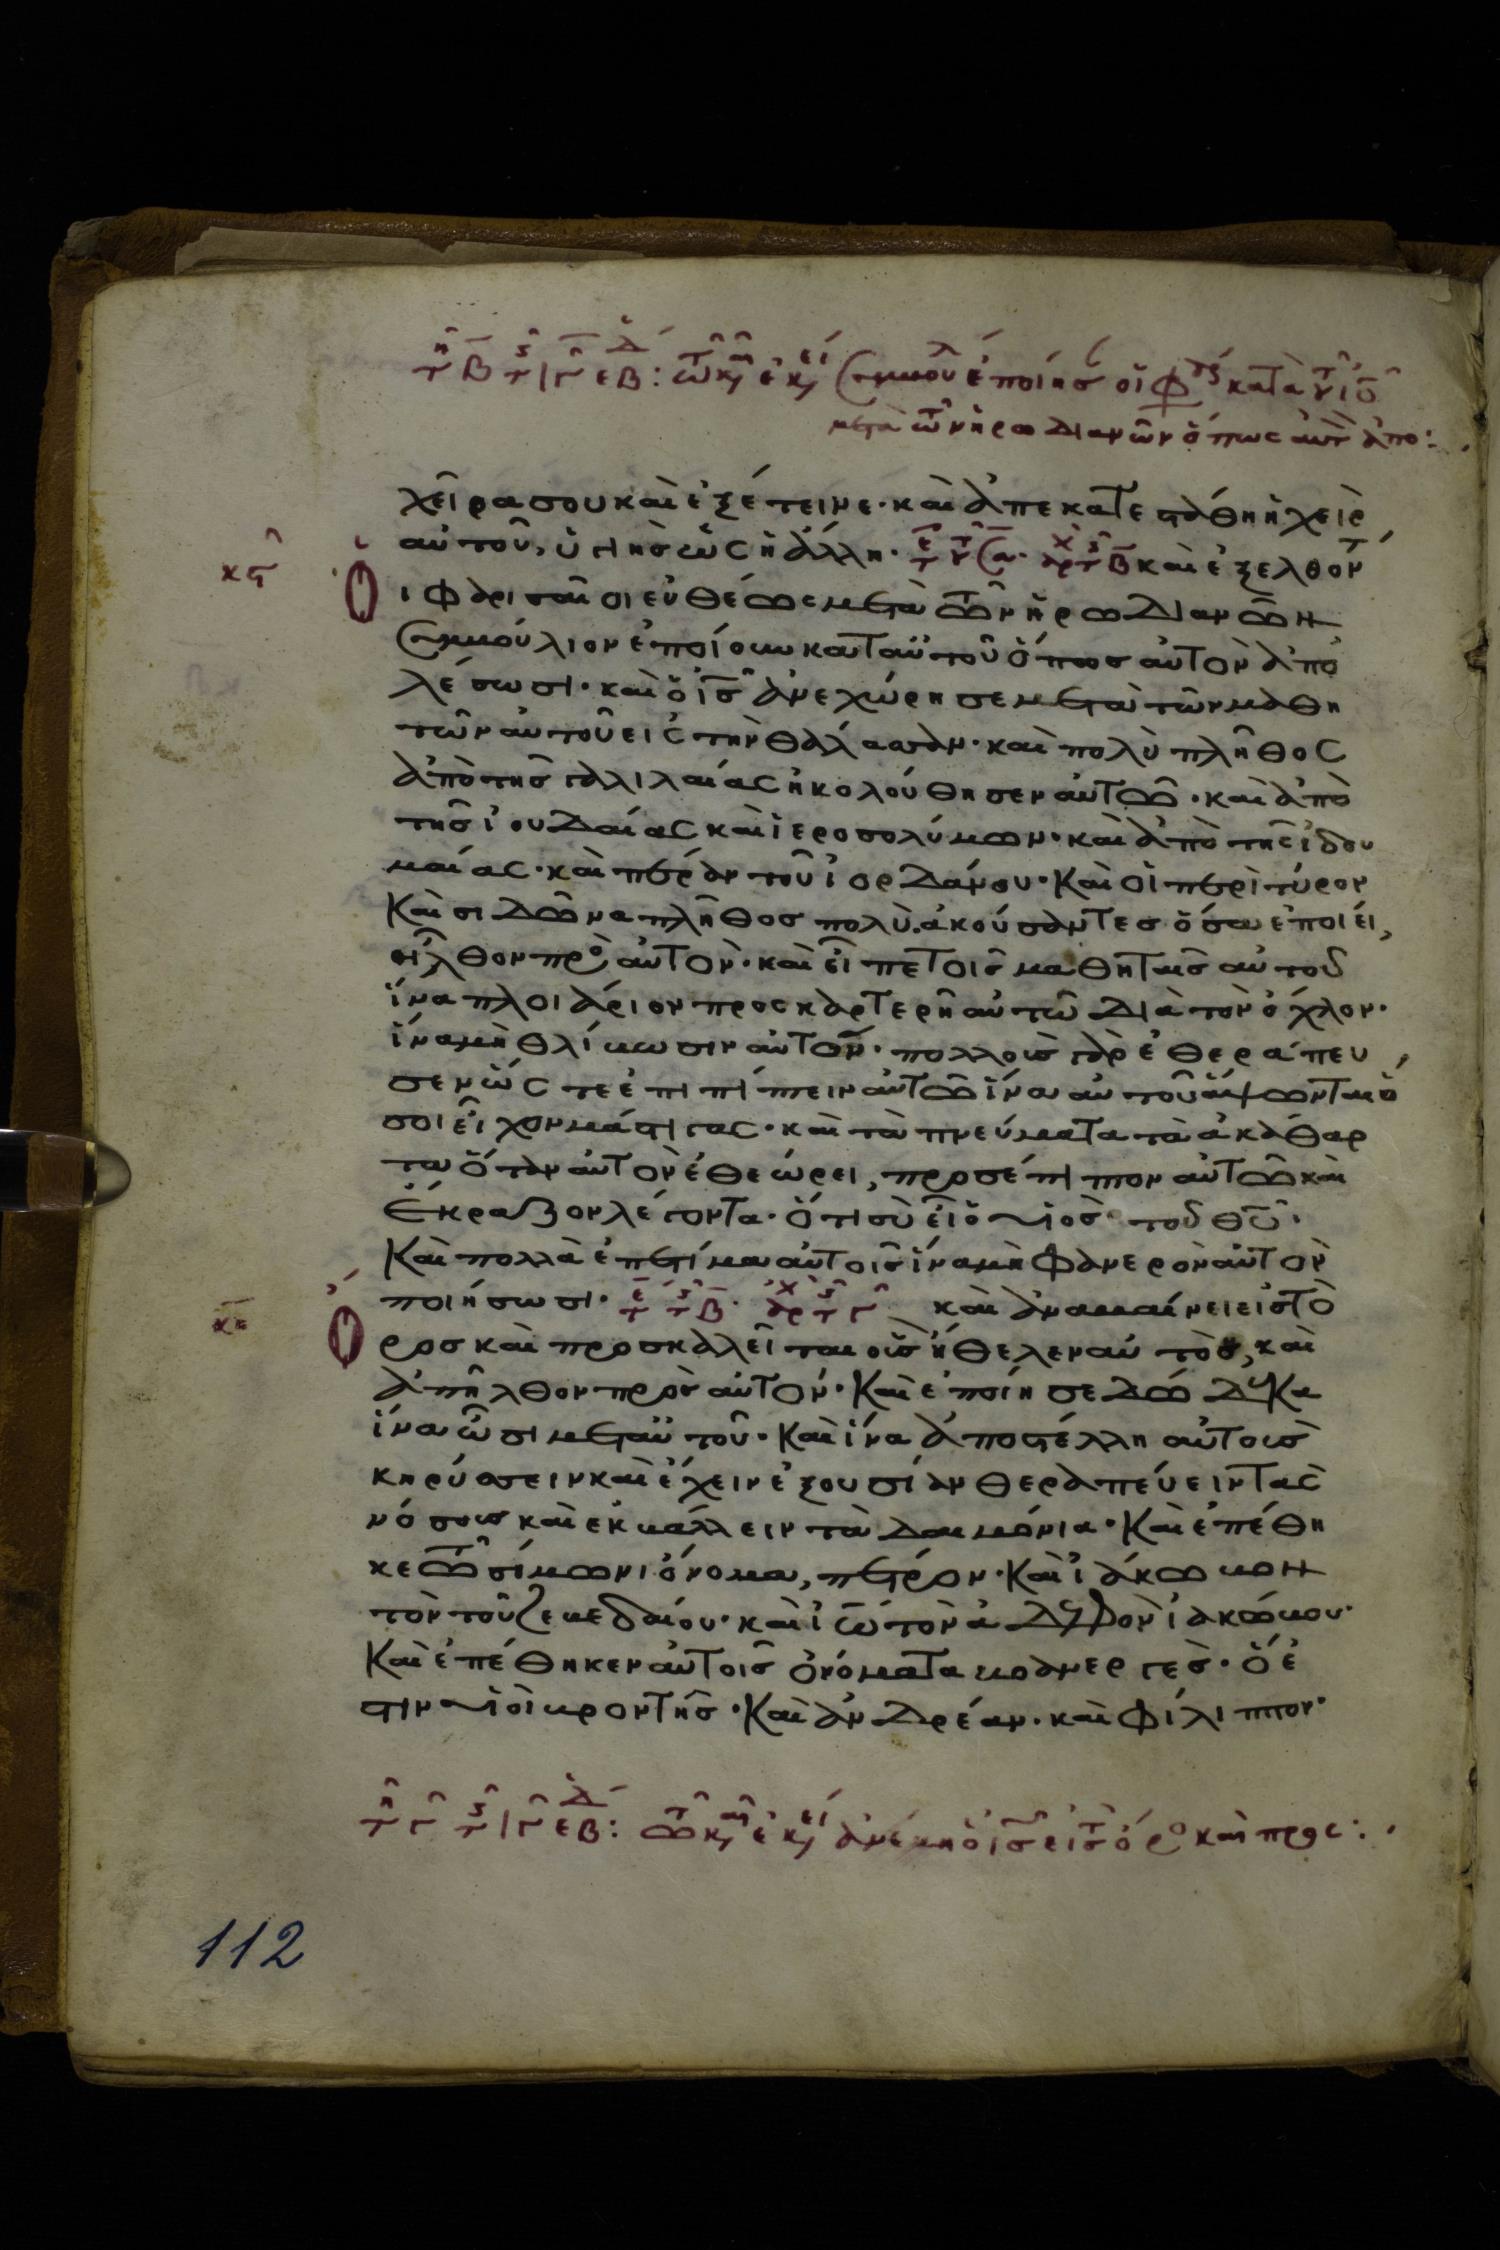 χεῖρα σου καὶ ἐξέτεινε· καὶ ἀπεκατεστάθη ἡ χεὶρ
αὐτοῦ, ὑγιὴς ὡς ἡ ἄλλη· καὶ ἐξελθόντ
ι φαρισαῖοι εὐθέως μετὰ τῶν ἡρωδιανῶν
συμβούλιον ἐποίουν κατ αὐτοῦ ὅπως αὐτὸν ἀπο
λέσωσι· καὶ ὁ ις ἀνεχώρησε μετὰ τῶν μαθη
τῶν αὐτοῦ εἰς τὴν θάλασσαν· καὶ πολὺ πλῆθος
ἀπὸ τῆς γαλιλαίας ἠκολούθησεν αὐτῶ· καὶ ἀπὸ
τῆς ἰουδαίας καὶ ἱεροσολύμων· καὶ ἀπὸ τῆς ἰδου
μαίας· καὶ πέραν τοῦ ἰορδάνου· Καὶ οἱ περὶ τύρον
Καὶ σιδῶνα πλῆθος πολὺ. ἀκούσαντες ὅσα ἐποίει,
ἦλθον πρὸ αὐτὸν· καὶ εἶπε τοῖς μαθηταῖς αὐτοῦ
ἵνα πλοιάριον προσκαρτερῆ αὐτῶ διὰ τὸν ὄχλον·
ἵνα μὴ θλίβωσιν αὐτόν· πολλοὺς γὰρ ἐθεράπευ
σεν ὥς τε ἐπιπίπτειν αὐτῶ ἵνα αὐτοῦ ἅψωνται ὅ
σοι εἶχον μάστιγας· καὶ τὰ πνεύματα τὰ ἀκάθαρ
τα ὅταν αὐτὸν ἐθεώρει, προσέπιπτον αὐτῶ καὶ
ἔκραζον λέγοντα· ὅτι σὺ εἶ ὁ υἱὸς τοῦ θυ·
Καὶ πολλὰ ἐπετίμα αὐτοῖς ἵνα μὴ φανερὸν αὐτὸν
ποιήσωσι· καὶ ἀναβαίνει εἰς τὸ
ρος καὶ προσκαλεῖται οὓς ἤθελεν αὐτὸς, καὶ
ἀπῆλθον πρὸς αὐτόν· Καὶ ἐποίησε δώδεκα
ἵνα ὦσι μετ αὐτοῦ· Καὶ ἵνα ἀποστέλλη αὐτοὺς
κηρύσσειν καὶ ἔχειν ἐξουσίαν θεραπεύειν τὰς
νόσους καὶ ἐκβάλλειν τὰ δαιμόνια· Καὶ ἐπέθη
κε τῶ σίμωνι ὄνομα, πέτρον· Καὶ ἰάκωβον
τὸν τοῦ ζεβεδαίου· καὶ ἰω τὸν ἀδελφὸν ἰακώβου·
Καὶ ἐπέθηκεν αὐτοῖς ὀνόματα βοανεργές· ὅ ἐ
στιν υἱοὶ βροντῆς· Καὶ ἀνδρέαν· καὶ φίλιππον·
112